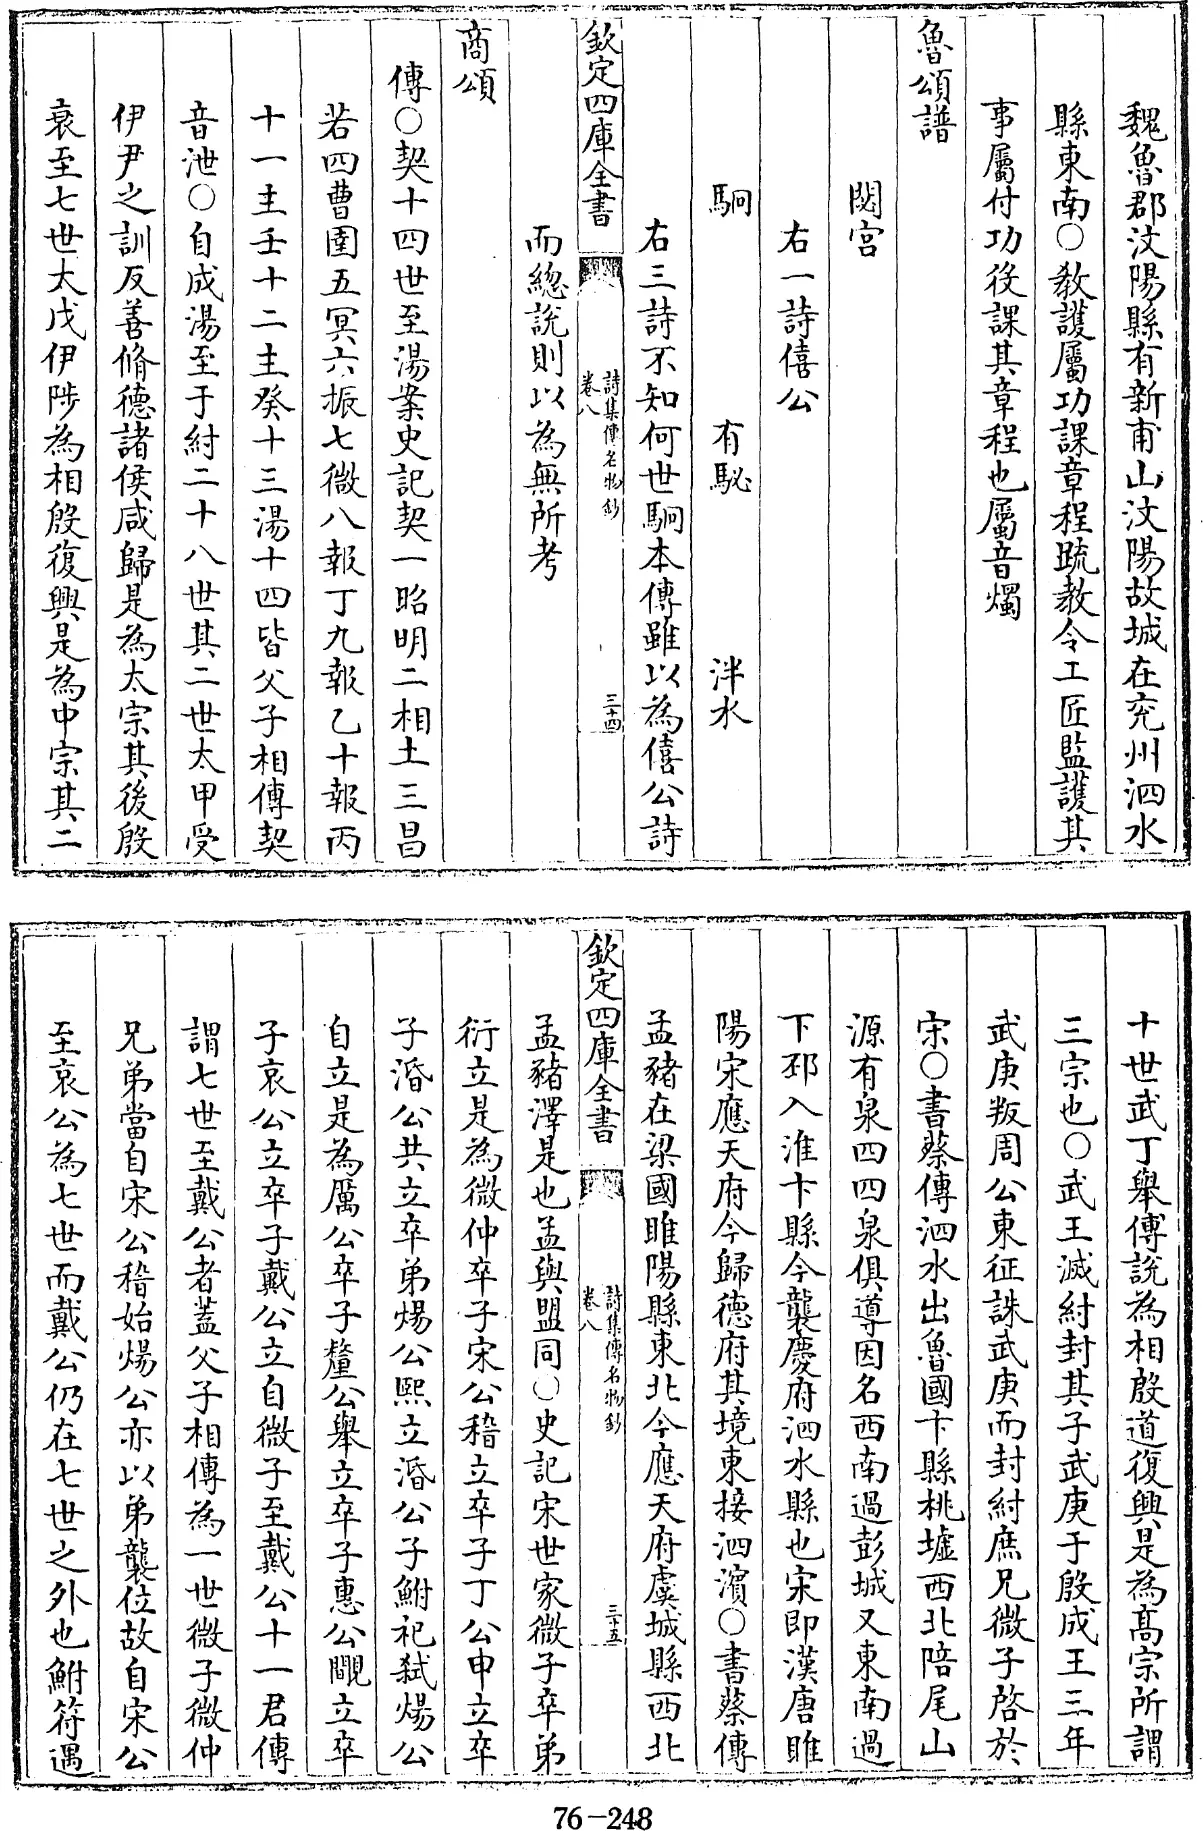 魏魯郡汶陽縣有新甫山汶陽故城在兗州泗水
縣東南○教護屬功課章程疏教令工匠監護其
事屬付功役課其章程也屬音燭
魯頌譜
閟宮
右一詩僖公
駉　有駜　泮水
右三詩不知何世駉本傳雖以為僖公詩
欽定四庫全書
詩集傳名物鈔
卷八
三十四
而總說則以為無所考
商頌
傳○契十四世至湯案史記契一昭明二相土三昌
若四曹圉五冥六振七微八報丁九報乙十報丙
十一主壬十二主癸十三湯十四皆父子相傳契
音泄○自成湯至于紂二十八世其二世太甲受
伊尹之訓反善脩德諸侯咸歸是為太宗其後殷
衰至七世太戊伊陟為相殷復興是為中宗其二
十世武丁舉傅說為相殷道復興是為髙宗所謂
三宗也○武王滅紂封其子武庚于殷成王三年
武庚叛周公東征誅武庚而封紂庶兄微子啓於
宋○書蔡傳泗水出魯國卞縣桃墟西北陪尾山
源有泉四四泉俱導因名西南過彭城又東南過
下邳入淮卞縣今襲慶府泗水縣也宋即漢唐睢
陽宋應天府今歸德府其境東接泗濱○書蔡傳
孟豬在梁國睢陽縣東北今應天府虞城縣西北
欽定四庫全書
詩集傳名物鈔
卷八
三十五
孟豬澤是也孟與盟同○史記宋世家微子卒弟
衍立是為微仲卒子宋公稽立卒子丁公申立卒
子湣公共立卒弟煬公熙立湣公子鮒祀弑煬公
自立是為厲公卒子釐公舉立卒子惠公覵立卒
子哀公立卒子戴公立自微子至戴公十一君傳
謂七世至戴公者蓋父子相傳為一世微子微仲
兄弟當自宋公稽始煬公亦以弟襲位故自宋公
至哀公為七世而戴公仍在七世之外也鮒符遇
76-248